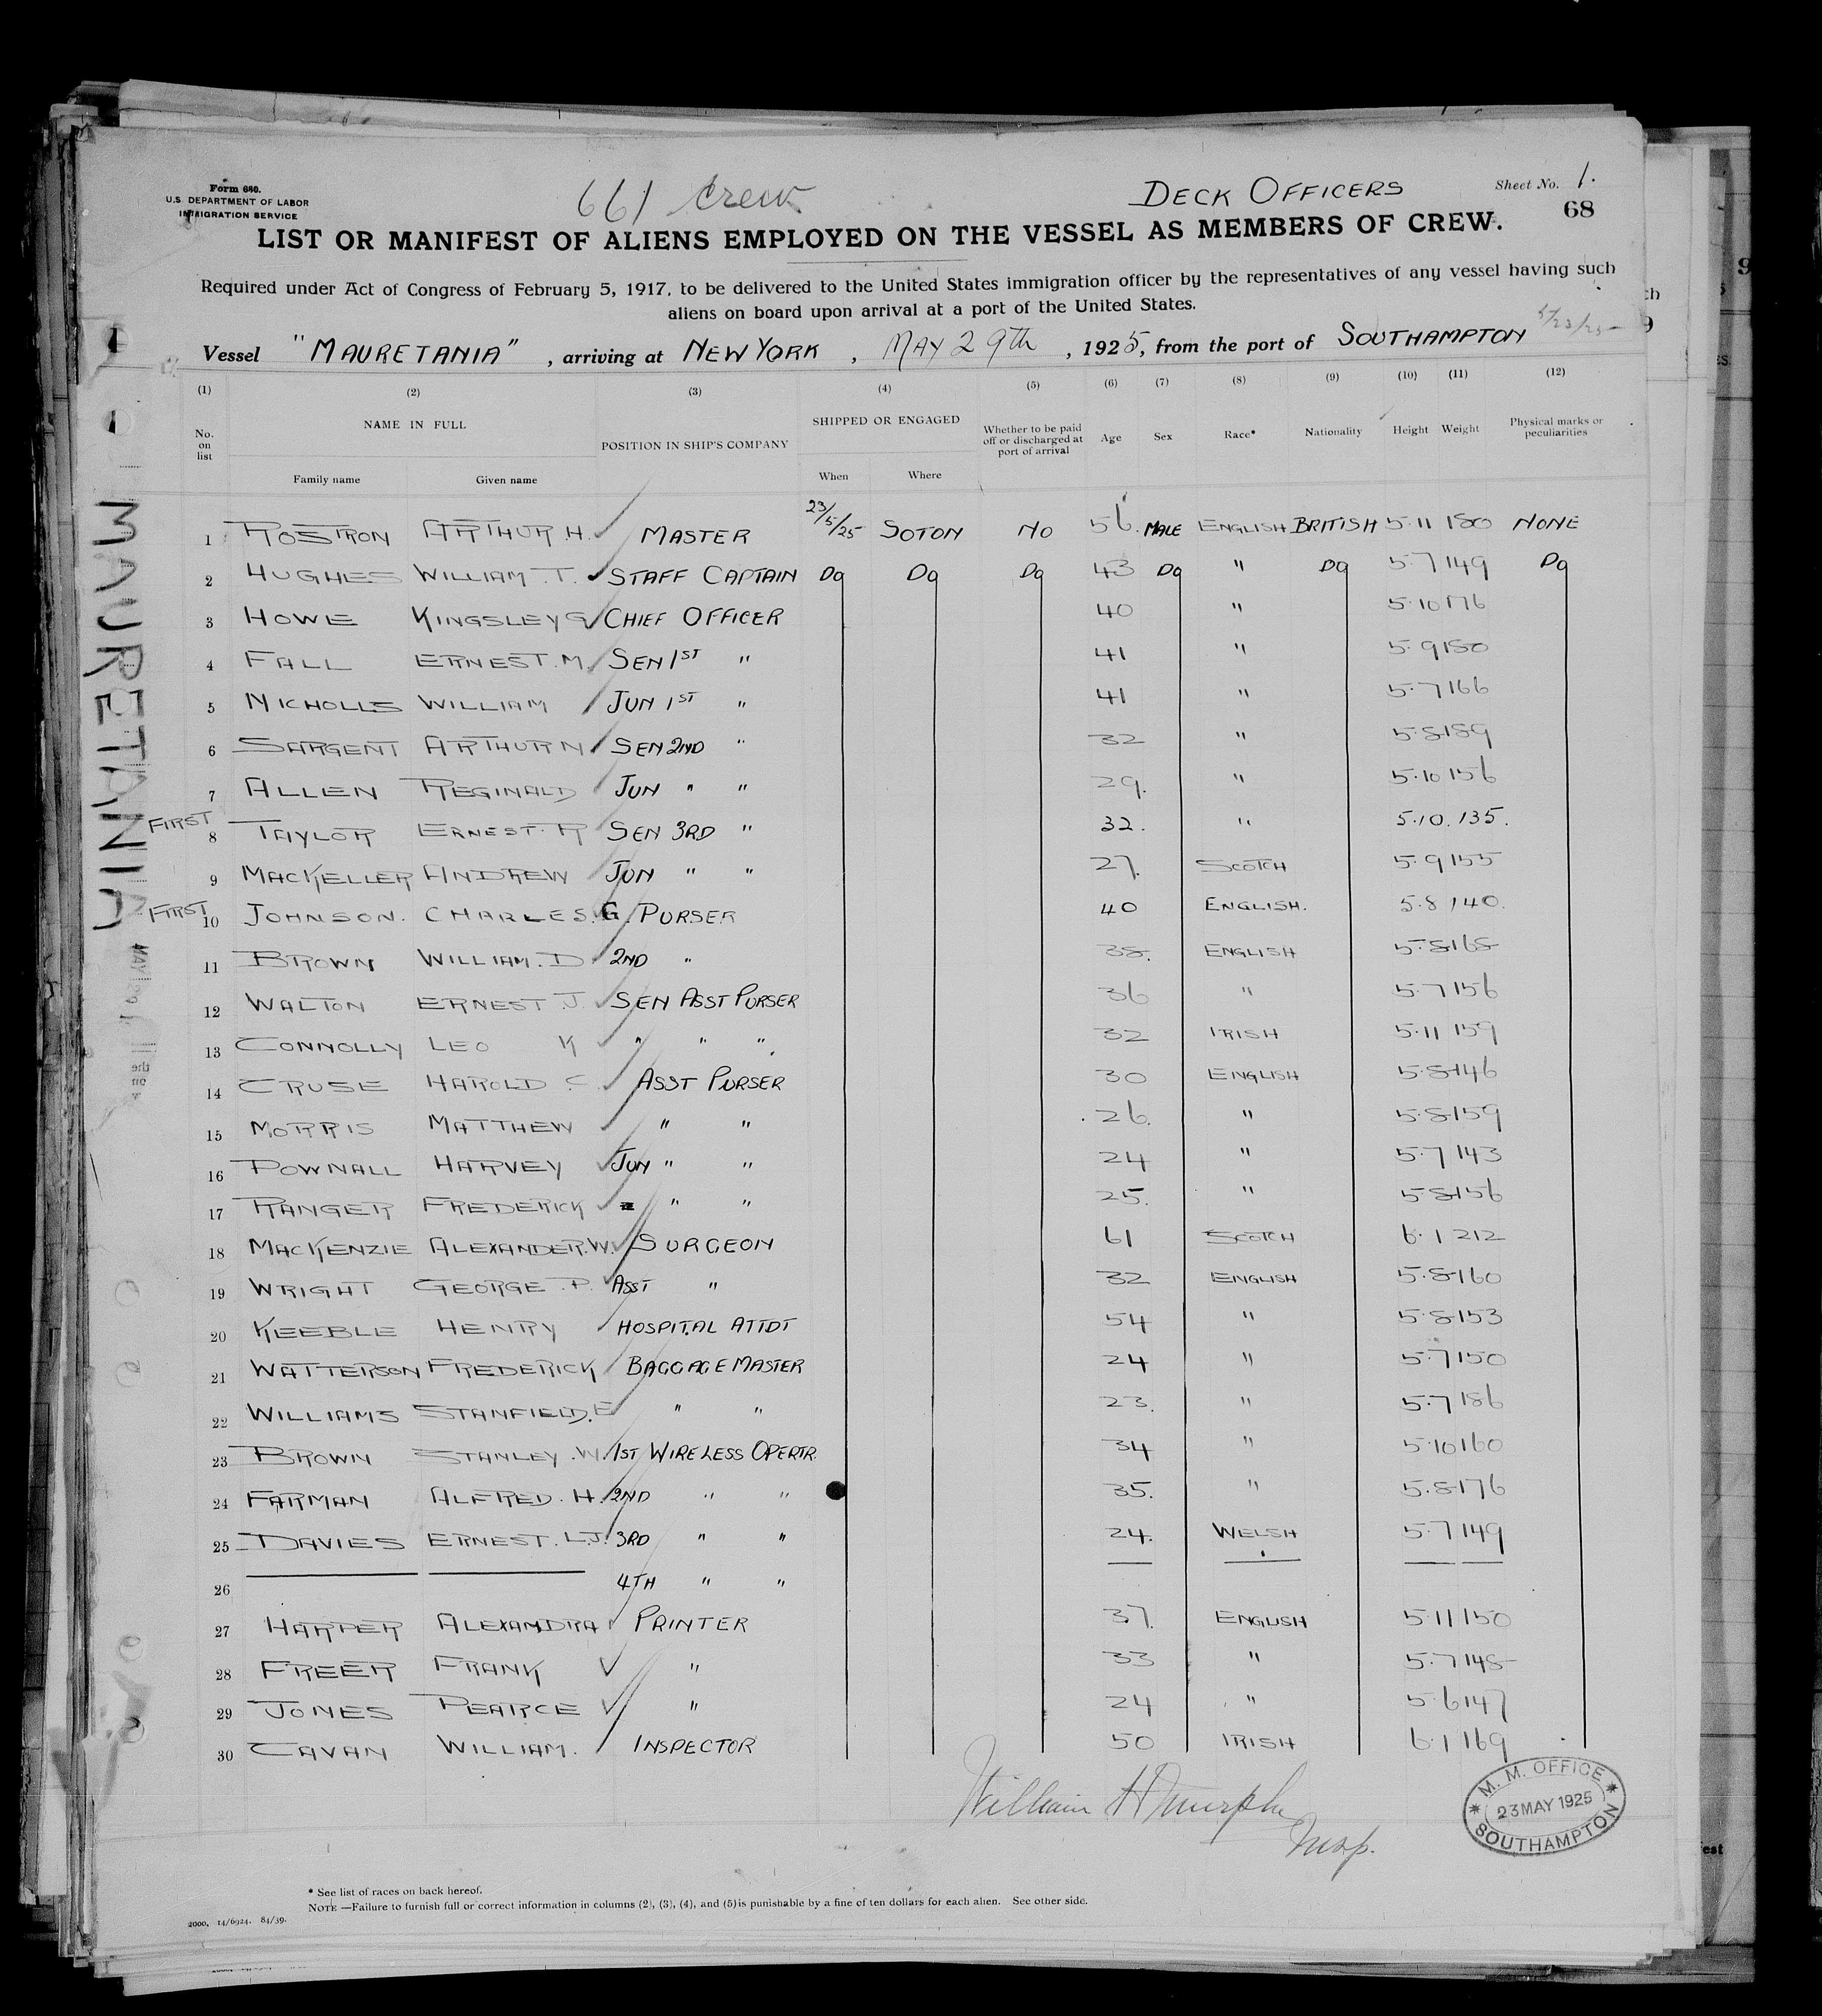 Form 680.
U.S. DEPARTMENT OF LABOR
IMMIGRATION SERVICE
661 Crew
DECK OFFICERS
Sheet No. 1.
68
LIST OR MANIFEST OF ALIENS EMPLOYED ON THE VESSEL AS MEMBERS OF CREW.
Required under Act of Congress of February 5, 1917, to be delivered to the United States immigration officer by the representatives of any vessel having such
aliens on board upon arrival at a port of the United States.
5/23/25
Vessel "MAURETANIA", arriving at NEW YORK, MAY 29th, 1925, from the port of SOUTHAMPTON
(1) (2) (3) (4) (5) (6) (7) (8) (9) (10) (11) (12)
No. on list NAME IN FULL POSITION IN SHIP'S COMPANY SHIPPED OR ENGAGED Whether to be paid off or discharged at port of arrival Age Sex Race* Nationality Height Weight Physical marks or peculiarities
Family name Given name When Where
1 ROSTRON ARTHUR H. MASTER 23/5/25 SOTON NO 56. MALE ENGLISH BRITISH 5·11 180 NONE
2 HUGHES WILLIAM. T. STAFF CAPTAIN Do Do Do 43 Do " Do 5·7 149 Do
3 HOWE KINGSLEY G CHIEF OFFICER 40 " 5·10 176
4 FALL ERNEST. M. SEN 1ST " 41 " 5·9 180
5 NICHOLLS WILLIAM JUN 1ST " 41 " 5·7 166
6 SARGENT ARTHUR N SEN 2ND " 32 " 5·8 189
7 ALLEN REGINALD JUN " " 29. " 5·10 156
FIRST 8 TAYLOR ERNEST. R SEN 3RD " 32. " 5·10. 135.
9 MACKELLER ANDREW JUN " " 27. SCOTCH 5·9 155
FIRST 10 JOHNSON. CHARLES. G. PURSER 40 ENGLISH. 5·8 140.
11 BROWN WILLIAM. D 2ND " 38. ENGLISH 5·8 168
12 WALTON ERNEST J. SEN ASST PURSER 36 " 5·7 156
13 CONNOLLY LEO K " " " 32 IRISH 5·11 159
14 CRUSE HAROLD C. ASST PURSER 30 ENGLISH 5·8 146
15 MORRIS MATTHEW " " 26. " 5·8 159
16 POWNALL HARVEY JUN " " 24 " 5·7 143
17 RANGER FREDERICK " " 25. " 5·8 156
18 MACKENZIE ALEXANDER. W. SURGEON 61 SCOTCH 6·1 212
19 WRIGHT GEORGE. P. ASST " 32 ENGLISH 5·8 160
20 KEEBLE HENRY HOSPITAL ATTDT 54 " 5·8 153
21 WATTERSON FREDERICK BAGGAGE MASTER 24 " 5·7 150
22 WILLIAMS STANFIELD. E " " 23. " 5·7 186
23 BROWN STANLEY. W. 1ST WIRELESS OPERTR. 34 " 5·10 160
24 FARMAN ALFRED. H. 2ND " " 35. " 5·8 176
25 DAVIES ERNEST. L.J. 3RD " " 24. WELSH 5·7 149
26 4TH " "
27 HARPER ALEXANDRA PRINTER 37. ENGLISH 5·11 150
28 FREER FRANK " 33 " 5·7 148
29 JONES PEARCE " 24 " 5·6 147
30 CAVAN WILLIAM. INSPECTOR 50 IRISH 6·1 169
William H Murphy
Insp.
M. M. OFFICE
23 MAY 1925
SOUTHAMPTON
* See list of races on back hereof.
NOTE —Failure to furnish full or correct information in columns (2), (3), (4), and (5) is punishable by a fine of ten dollars for each alien. See other side.
2000, 14/6924. 84/39.
MAURETANIA